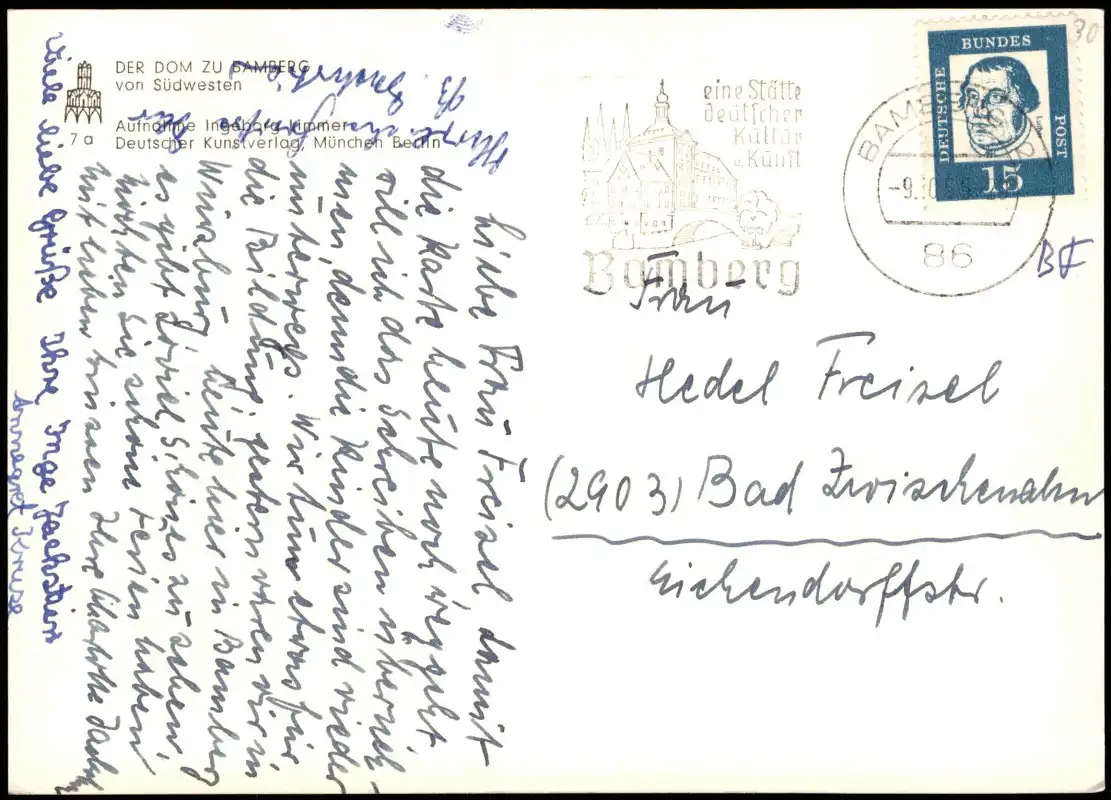 DER DOM ZU BAMBERG
von Südwesten
7 a
Aufnahme Ingeborg Limmer
Deutscher Kunstverlag, München Berlin
eine Stätte
deutscher
Kultur
u. Kunst
Bamberg
BAMBERG
86
DEUTSCHE
BUNDES
POST
15
30
BF
Frau
Hedel Freisel
(2903) Bad Zwischenahn
Eichendorffstr.
Liebe Frau Freisel, damit
die Karte heute noch weggeht
will ich das Schreiben überneh-
men, denn die Kinder sind wieder
unterwegs. Wir tun etwas für
die Bildung, gestern waren wir in
Würzburg, heute hier in Bamberg
es gibt soviel Schönes zu sehen,
möchten Sie schöne Ferien haben
mit lieben Grüssen Ihre Charlotte
Viele liebe Grüße Ihre Inge
Annegret Kruse
Herzliche Grüße